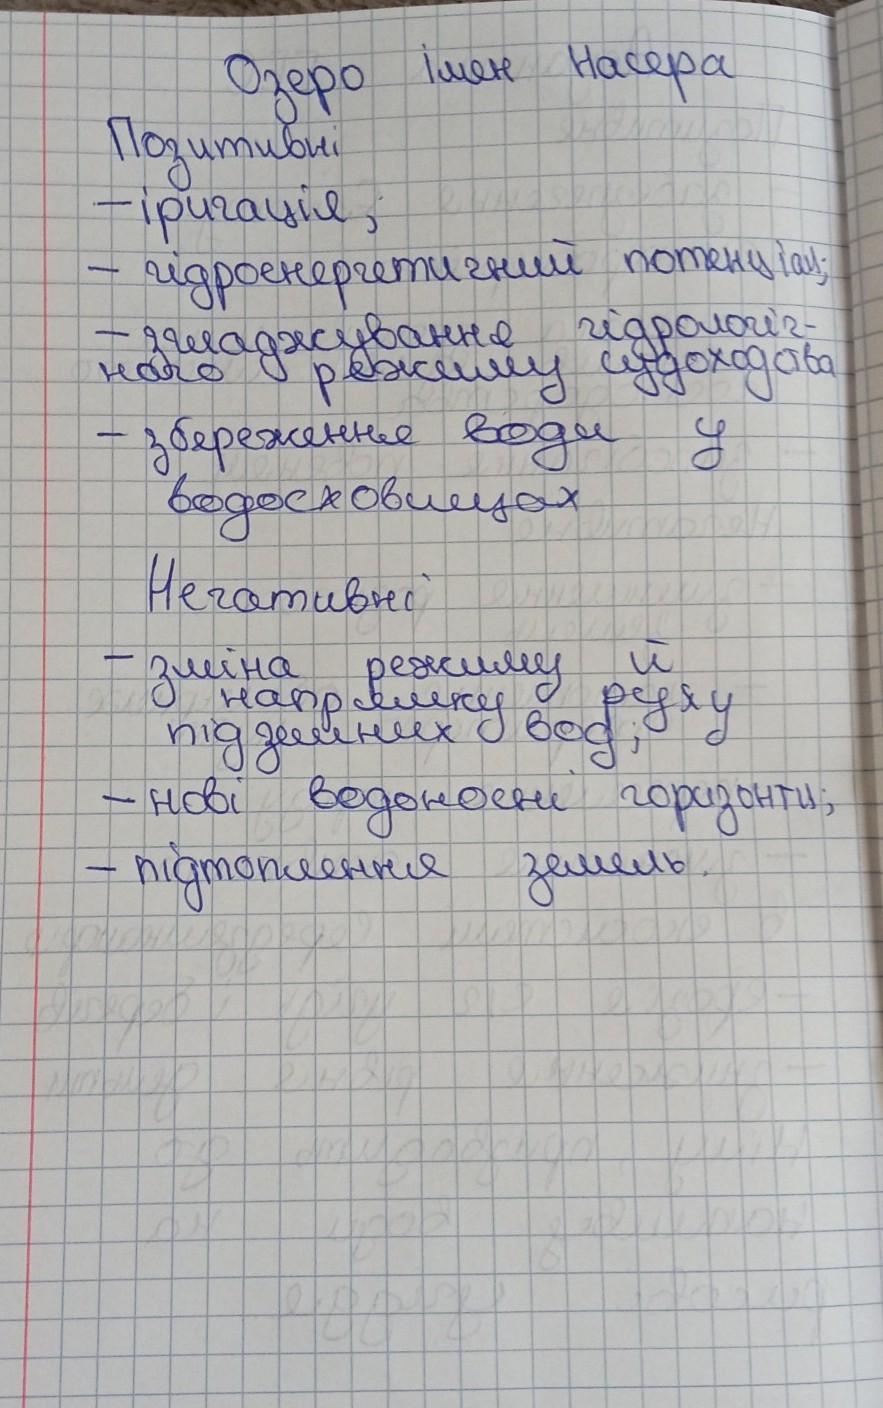 Озеро імен Насера
Позитивні
- іригація;
- гідроенергетичний потенціал;
- згладжування гідрологіч-
ного режиму судоходства
- збереження води у
водосховищах
Негативні
- зміна режиму й
напрямку руху
підземних вод;
- нові водоносні горизонти;
- підтоплення земель.